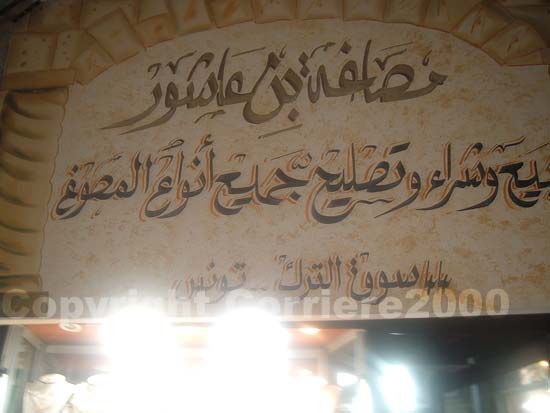 مصاغة بن عاشور
بيع وشراء وتصليح جميع أنواع المصوغ
44 سوق الترك .. تونس
Copyright Corriere2000